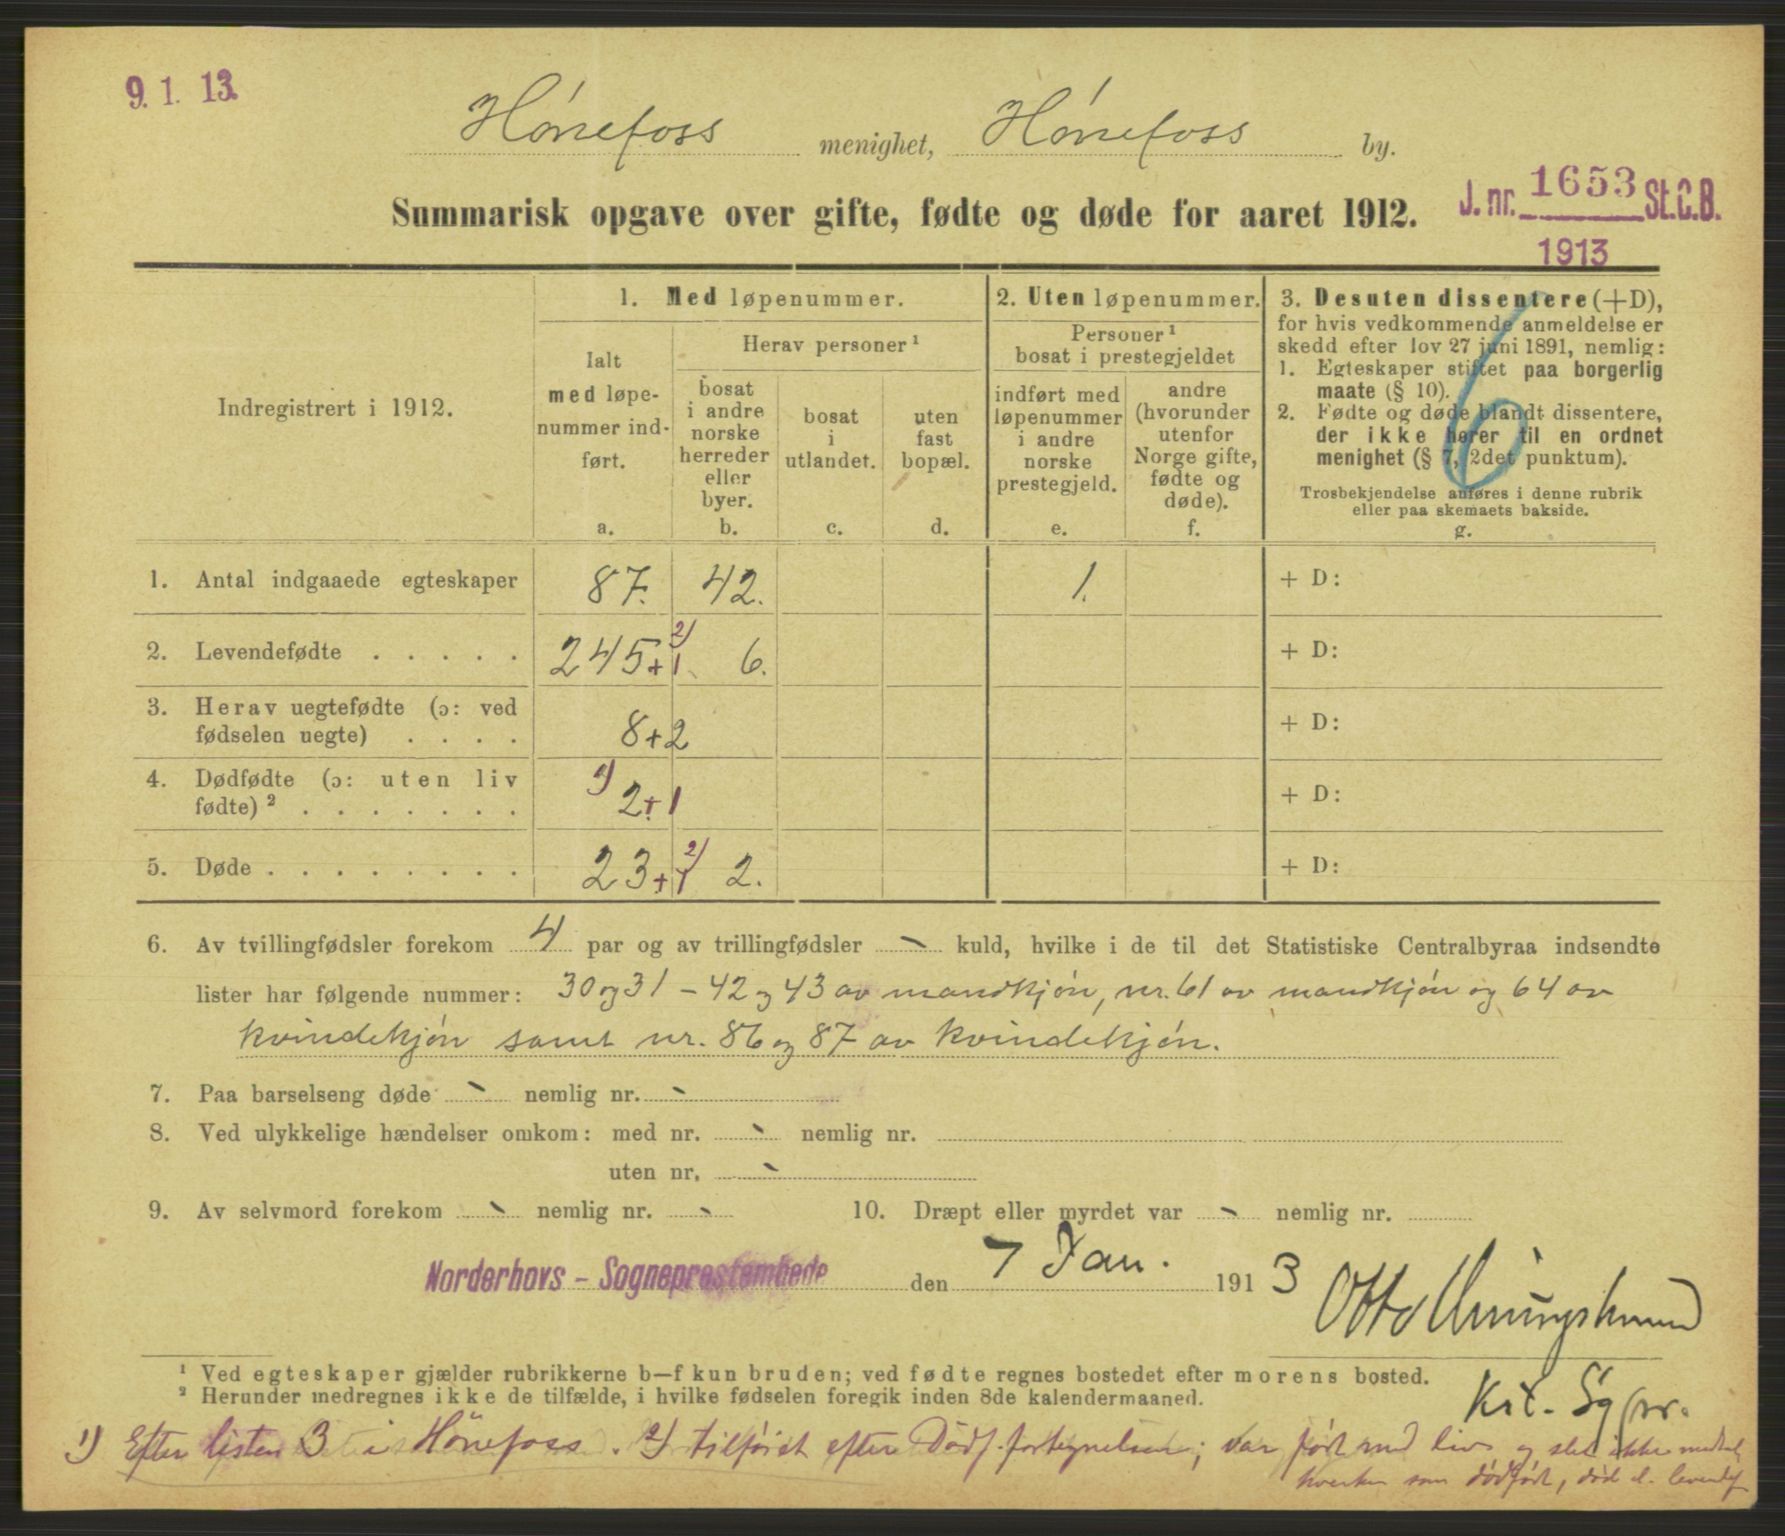 9. 1. 13.
Hønefoss menighet, Hønefoss by.
Summarisk opgave over gifte, fødte og døde for aaret 1912.
J. nr. 1653 St.C.B.
1913
Indregistrert i 1912.
1. Med løpenummer.
Ialt
med løpe-
nummer ind-
ført.
a.
Herav personer ¹
bosat
i andre
norske
herreder
eller
byer.
b.
bosat
i
utlandet.
c.
uten
fast
bopæl.
d.
2. Uten løpenummer.
Personer ¹
bosat i prestegjeldet
indført med
løpenummer
i andre
norske
prestegjeld.
e.
andre
(hvorunder
utenfor
Norge gifte,
fødte og
døde).
f.
3. Desuten dissentere (+D),
for hvis vedkommende anmeldelse er
skedd efter lov 27 juni 1891, nemlig:
1. Egteskaper stiftet paa borgerlig
maate (§ 10).
2. Fødte og døde blandt dissentere,
der ikke hører til en ordnet
menighet (§ 7, 2det punktum).
Trosbekjendelse anføres i denne rubrik
eller paa skemaets bakside.
g.
6
1. Antal indgaaede egteskaper 87. 42. 1. + D:
2. Levendefødte . . . . . 245+1 2) 6. + D:
3. Herav uegtefødte (ɔ: ved
fødselen uegte) . . . . 8+2 + D:
4. Dødfødte (ɔ: uten liv
fødte) ² . . . . . . . 1) 2+1 + D:
5. Døde . . . . . . . . 23+1 2) 2. + D:
6. Av tvillingfødsler forekom 4 par og av trillingfødsler - kuld, hvilke i de til det Statistiske Centralbyraa indsendte
lister har følgende nummer: 30 og 31 – 42 og 43 av mandkjøn, nr. 61 av mandkjøn og 64 av
kvindekjøn samt nr. 86 og 87 av kvindekjøn.
7. Paa barselseng døde - nemlig nr. -
8. Ved ulykkelige hændelser omkom: med nr. - nemlig nr.
uten nr. -
9. Av selvmord forekom - nemlig nr. - 10. Dræpt eller myrdet var - nemlig nr.
Norderhovs - Sogneprestembede den 7 Jan. 1913
Otto
Kst. Sgpr.
¹ Ved egteskaper gjælder rubrikkerne b—f kun bruden; ved fødte regnes bostedet efter morens bosted.
² Herunder medregnes ikke de tilfælde, i hvilke fødselen foregik inden 8de kalendermaaned.
1) Efter listen 3 i Hønefoss. 2) tilføiet efter Dødf. fortegnelsen; var født med liv og slet ikke medtal
hverken som dødfødt, død el. levendef